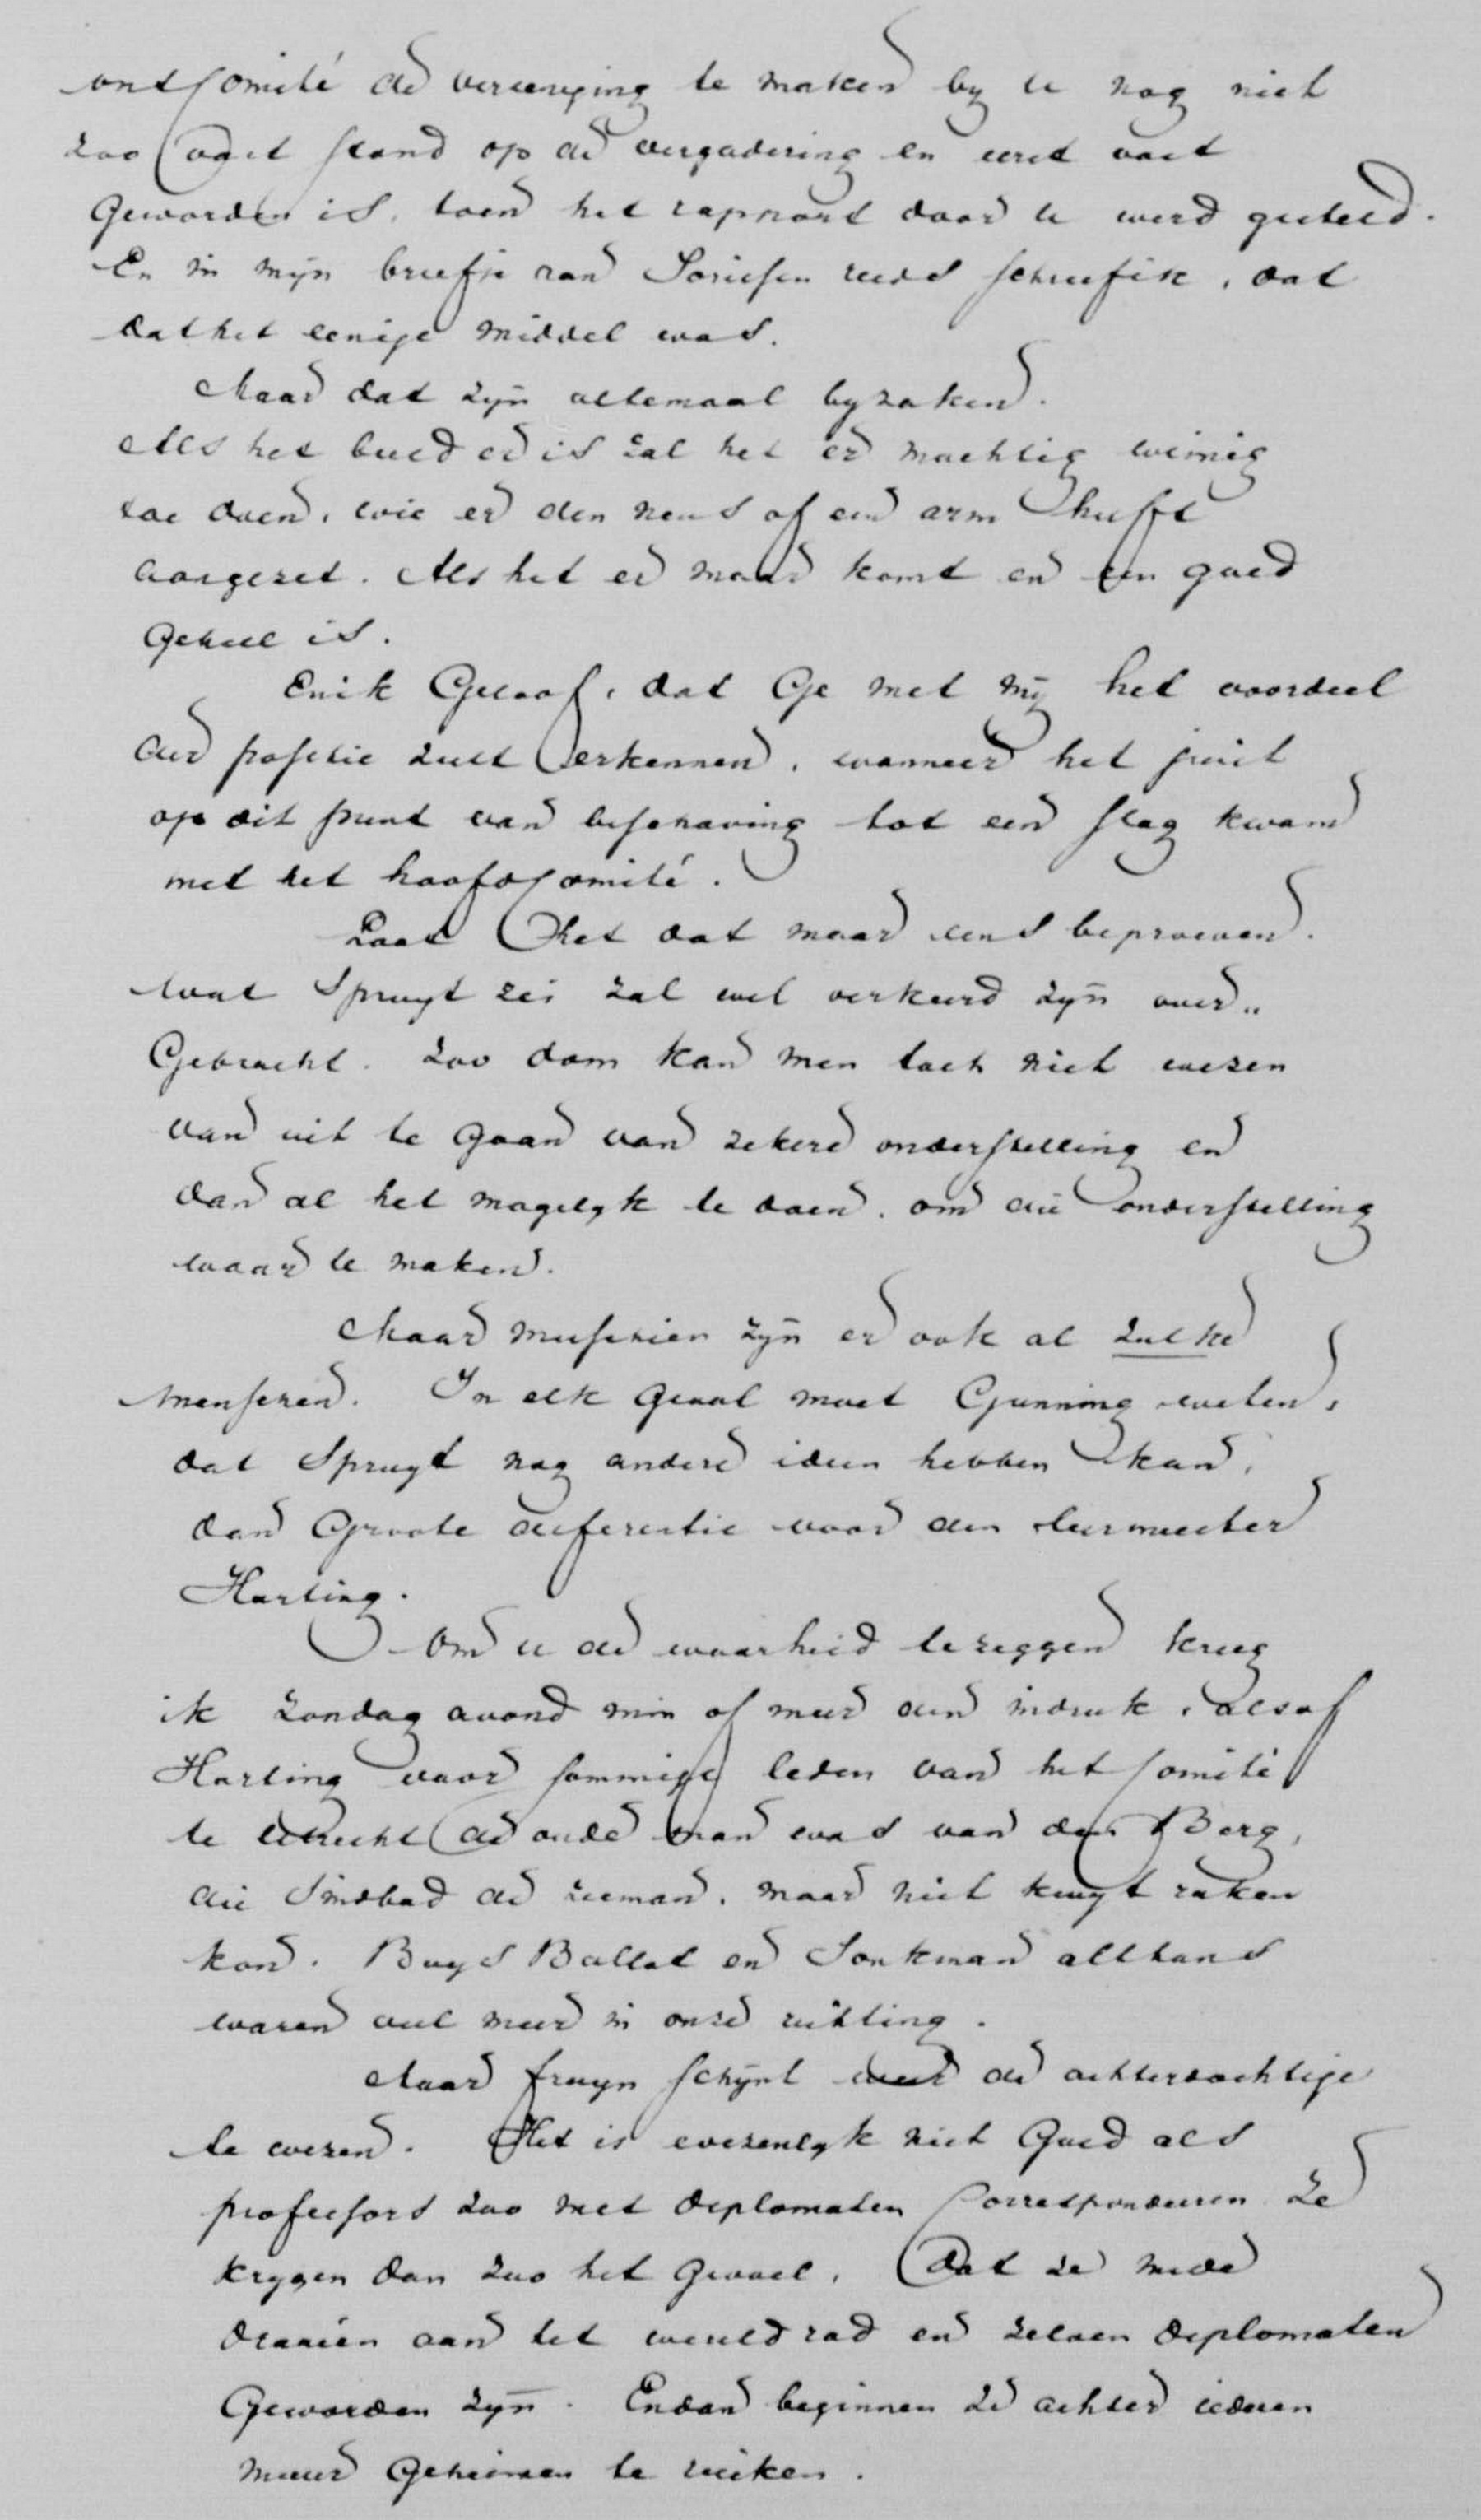 ons Comité de vereeniging te maken by u nog niet
zoo vast stond op de vergadering en eerst vast
Geworden is, toen het rapport door u werd gesteld.
En in mijn briefje aan Loriesen reeds schreef ik, dat
dat het eenige middel was.
Maar dat zyn allemaal byzaken.
Als het beeld er is zal het er machtig weinig
toe doen, wie er den neus of een arm heeft
aangezet. Als het er maar komt en een goed
Geheel is.
En ik Geloof, dat Ge met my het voordeel
der positie zult erkennen, wanneer het juist
op dit punt van beschaving tot een slag kwam
met het hoofdcomité.
Laat het dat maar eens beproeven.
Wat Spruyt zei zal wel verkeerd zyn over„
Gebracht. Zoo dom kan men toch niet wezen
van uit te gaan van zekere onderstelling en
dan al het mogelyk te doen, om die onderstelling
waar te maken.
Maar misschien zyn er ook al zulke
menschen. In elk Geval moet Gunning weten,
dat Spruyt nog andere ideen hebben kan,
dan Groote deferentie voor den leermeester
Harting.
Om u de waarheid te zeggen kreeg
ik Zondag avond min of meer den indruk, alsof
Harting voor sommige leden van het Comité
te Utrecht de oude man was van den Berg,
die Sindbad de zeeman, maar niet kwyt raken
kon. Buys Ballot en Jonkman althans
waren veel meer in onze richting.
Maar Fruyn schynt weer de achterdochtige
te wezen. Het is wezenlyk niet Goed als
professors zoo met diplomaten Correspondeeren Ze
krygen dan zoo het Gevoel, dat ze mede
draaien aan het wereldrad en zelven diplomaten
Geworden zyn. En dan beginnen ze achter iederen
muur Geheimen te ruiken.